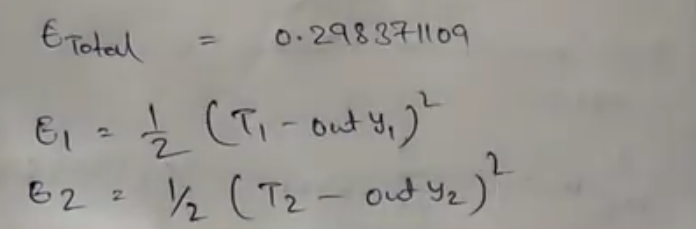 E Total = 0.298371109
E₁ = 1/2 (T₁ - out y₁)²
E2 = 1/2 (T2 - out y2)²